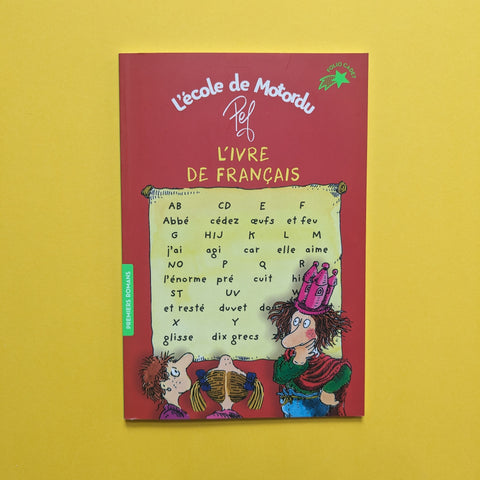 FOLIO CADET
L'école de Motordu
Pef
L'IVRE
DE FRANÇAIS
AB CD E F
Abbé cédez œufs et feu
G HIJ K L M
j'ai agi car elle aime
NO P Q R
l'énorme pré cuit
ST UV W
et resté duvet
X Y
glisse dix grecs
PREMIERS ROMANS